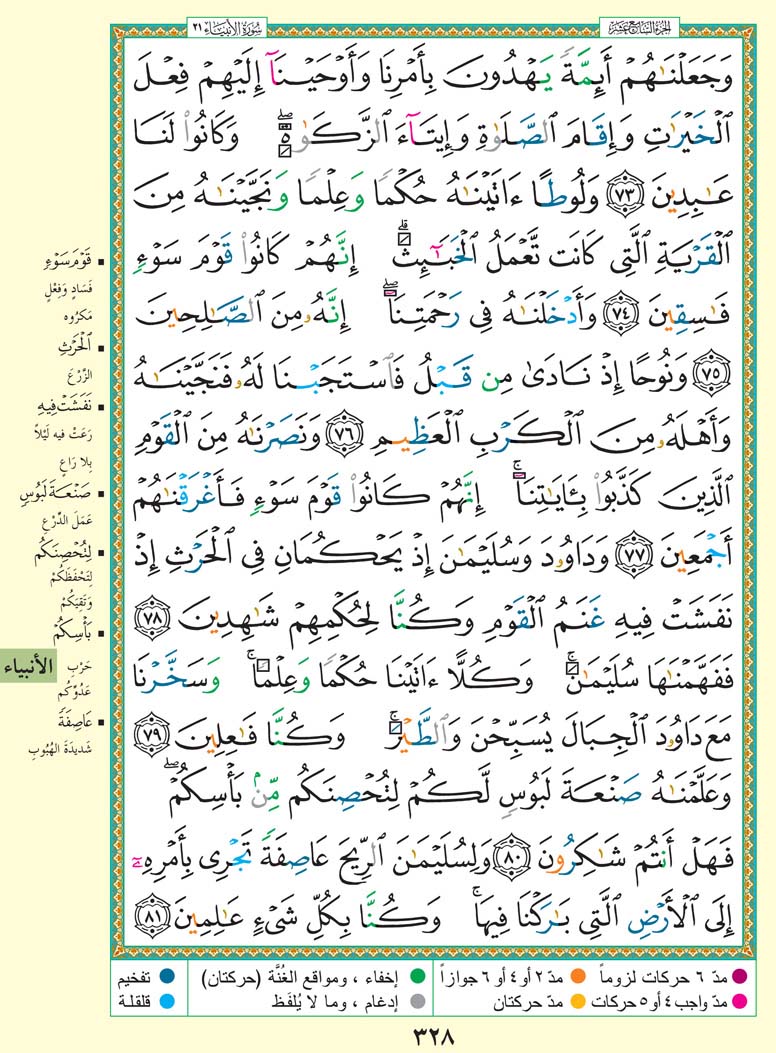 الجزء السابع عشر
سورة الأنبياء ٢١
وَجَعَلْنَٰهُمْ أَئِمَّةً يَهْدُونَ بِأَمْرِنَا وَأَوْحَيْنَآ إِلَيْهِمْ فِعْلَ
ٱلْخَيْرَٰتِ وَإِقَامَ ٱلصَّلَوٰةِ وَإِيتَآءَ ٱلزَّكَوٰةِ ۖ وَكَانُوا۟ لَنَا
عَٰبِدِينَ ٧٣ وَلُوطًا ءَاتَيْنَٰهُ حُكْمًا وَعِلْمًا وَنَجَّيْنَٰهُ مِنَ
ٱلْقَرْيَةِ ٱلَّتِى كَانَت تَّعْمَلُ ٱلْخَبَٰٓئِثَ ۗ إِنَّهُمْ كَانُوا۟ قَوْمَ سَوْءٍ
فَٰسِقِينَ ٧٤ وَأَدْخَلْنَٰهُ فِى رَحْمَتِنَآ ۖ إِنَّهُۥ مِنَ ٱلصَّٰلِحِينَ
٧٥ وَنُوحًا إِذْ نَادَىٰ مِن قَبْلُ فَٱسْتَجَبْنَا لَهُۥ فَنَجَّيْنَٰهُ
وَأَهْلَهُۥ مِنَ ٱلْكَرْبِ ٱلْعَظِيمِ ٧٦ وَنَصَرْنَٰهُ مِنَ ٱلْقَوْمِ
ٱلَّذِينَ كَذَّبُوا۟ بِـَٔايَٰتِنَآ ۚ إِنَّهُمْ كَانُوا۟ قَوْمَ سَوْءٍ فَأَغْرَقْنَٰهُمْ
أَجْمَعِينَ ٧٧ وَدَاوُۥدَ وَسُلَيْمَٰنَ إِذْ يَحْكُمَانِ فِى ٱلْحَرْثِ إِذْ
نَفَشَتْ فِيهِ غَنَمُ ٱلْقَوْمِ وَكُنَّا لِحُكْمِهِمْ شَٰهِدِينَ ٧٨
فَفَهَّمْنَٰهَا سُلَيْمَٰنَ ۚ وَكُلًّا ءَاتَيْنَا حُكْمًا وَعِلْمًا ۚ وَسَخَّرْنَا
مَعَ دَاوُۥدَ ٱلْجِبَالَ يُسَبِّحْنَ وَٱلطَّيْرَ ۚ وَكُنَّا فَٰعِلِينَ ٧٩
وَعَلَّمْنَٰهُ صَنْعَةَ لَبُوسٍ لَّكُمْ لِتُحْصِنَكُم مِّنۢ بَأْسِكُمْ ۖ
فَهَلْ أَنتُمْ شَٰكِرُونَ ٨٠ وَلِسُلَيْمَٰنَ ٱلرِّيحَ عَاصِفَةً تَجْرِى بِأَمْرِهِۦٓ
إِلَى ٱلْأَرْضِ ٱلَّتِى بَٰرَكْنَا فِيهَا ۚ وَكُنَّا بِكُلِّ شَىْءٍ عَٰلِمِينَ ٨١
قَوْمَ سَوْءٍ
فَسَادٍ وَفِعْلٍ
مَكروه
ٱلْحَرْثِ
الزَّرْعَ
نَفَشَتْ فِيهِ
رَعَتْ فيه لَيْلاً
بِلا رَاعٍ
صَنْعَةَ لَبُوسٍ
عَمَلَ الدِّرْعِ
لِتُحْصِنَكُم
لِتَحْفَظَكُمْ
وَتَقِيَكُمْ
بَأْسِكُمْ
حَرْبِ
عَدُوِّكُم
عَاصِفَةً
شَدِيدَةَ الهُبُوبِ
الأنبياء
مدّ ٦ حركات لزوماً
مدّ ٢ أو ٤ أو ٦ جوازاً
إخفاء ، ومواقع الغُنَّة (حركتان)
تفخيم
مدّ واجب ٤ أو ٥ حركات
مدّ حركتان
إدغام ، وما لا يُلفَظ
قلقلة
٣٢٨